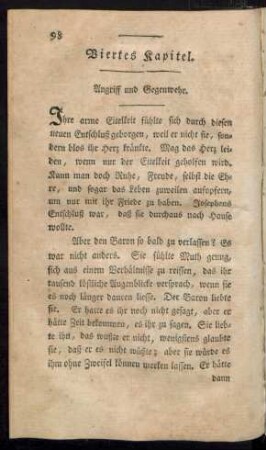 98
Viertes Kapitel.
Angriff und Gegenwehr.
Ihre arme Eitelkeit fühlte sich durch diesen
neuen Entschluß geborgen, weil er nicht sie, son-
dern blos ihr Herz kränkte. Mag das Herz lei-
den, wenn nur der Eitelkeit geholfen wird.
Kann man doch Ruhe, Freude, selbst die Eh-
re, und sogar das Leben zuweilen aufopfern,
um nur mit ihr Friede zu haben. Josephens
Entschluß war, daß sie durchaus nach Hause
wollte.
Aber den Baron so bald zu verlassen? Es
war nicht anders. Sie fühlte Muth genug,
sich aus einem Verhältnisse zu reissen, das ihr
tausend köstliche Augenblicke versprach, wenn sie
es noch länger dauren liesse. Der Baron liebte
sie. Er hatte es ihr noch nicht gesagt, aber er
hätte Zeit bekommen, es ihr zu sagen. Sie lieb-
te ihn, das wußte er nicht, wenigstens glaubte
sie, daß er es nicht wüßte; aber sie würde es
ihm ohne Zweifel können merken lassen. Er hätte
dann